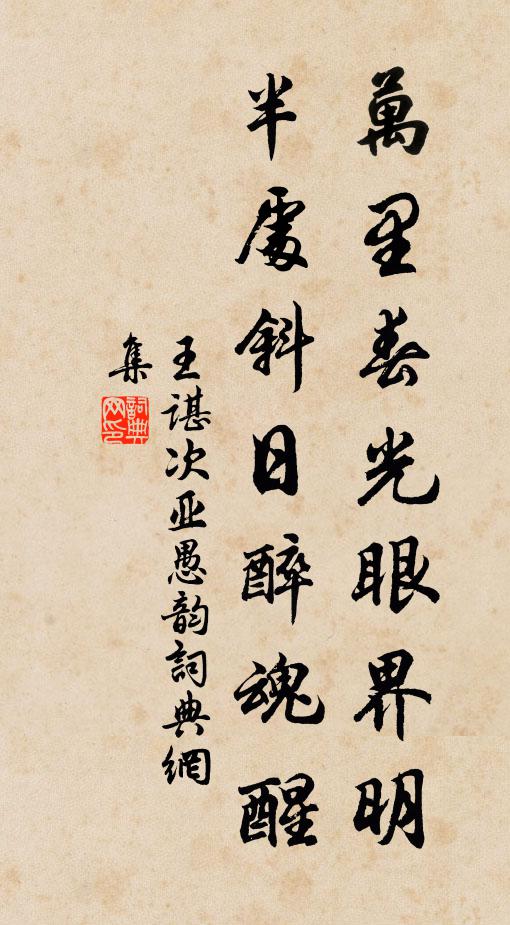 萬里春光眼界明
半處斜日醉魂醒
王諶次亚愚韵詞典網
集
詞典網印